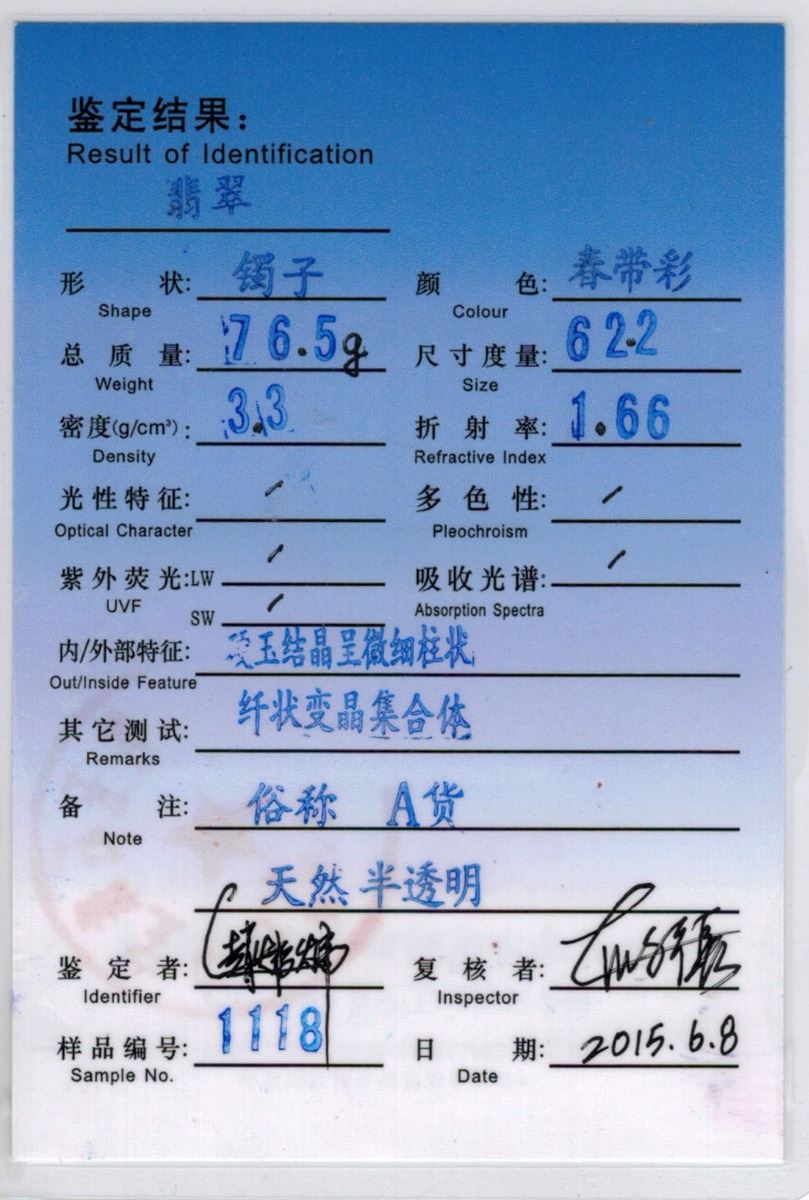 鉴定结果：
Result of Identification
翡翠
形状: 镯子 颜色: 春带彩
Shape Colour
总质量: 76.5g 尺寸度量: 62.2
Weight Size
密度(g/cm³): 3.3 折射率: 1.66
Density Refractive Index
光性特征: / 多色性: /
Optical Character Pleochroism
紫外荧光:LW / 吸收光谱: /
UVF Absorption Spectra
SW /
内/外部特征: 硬玉结晶呈微细柱状
Out/Inside Feature
其它测试: 纤状变晶集合体
Remarks
备注: 俗称 A货
Note
天然 半透明
鉴定者: 复核者:
Identifier Inspector
样品编号: 1118 日期: 2015.6.8
Sample No. Date